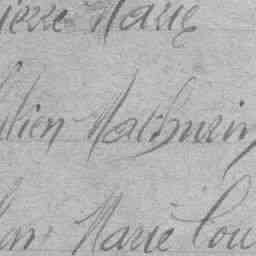 ierre Marie
ulien Mathurin
Marie Lou